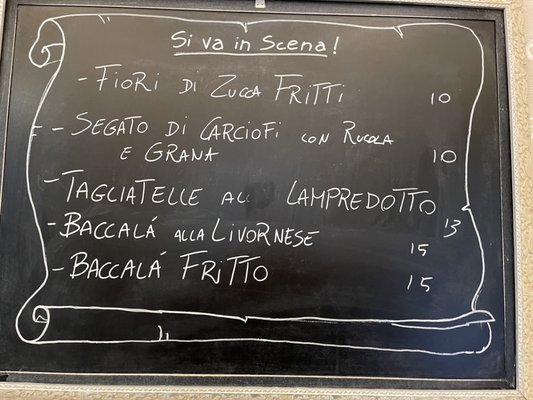 Si va in Scena!
- Fiori di Zucca Fritti 10
- Segato di Carciofi con Rucola
e Grana 10
- Tagliatelle al Lampredotto 13
- Baccalá alla Livornese 15
- Baccalá Fritto 15